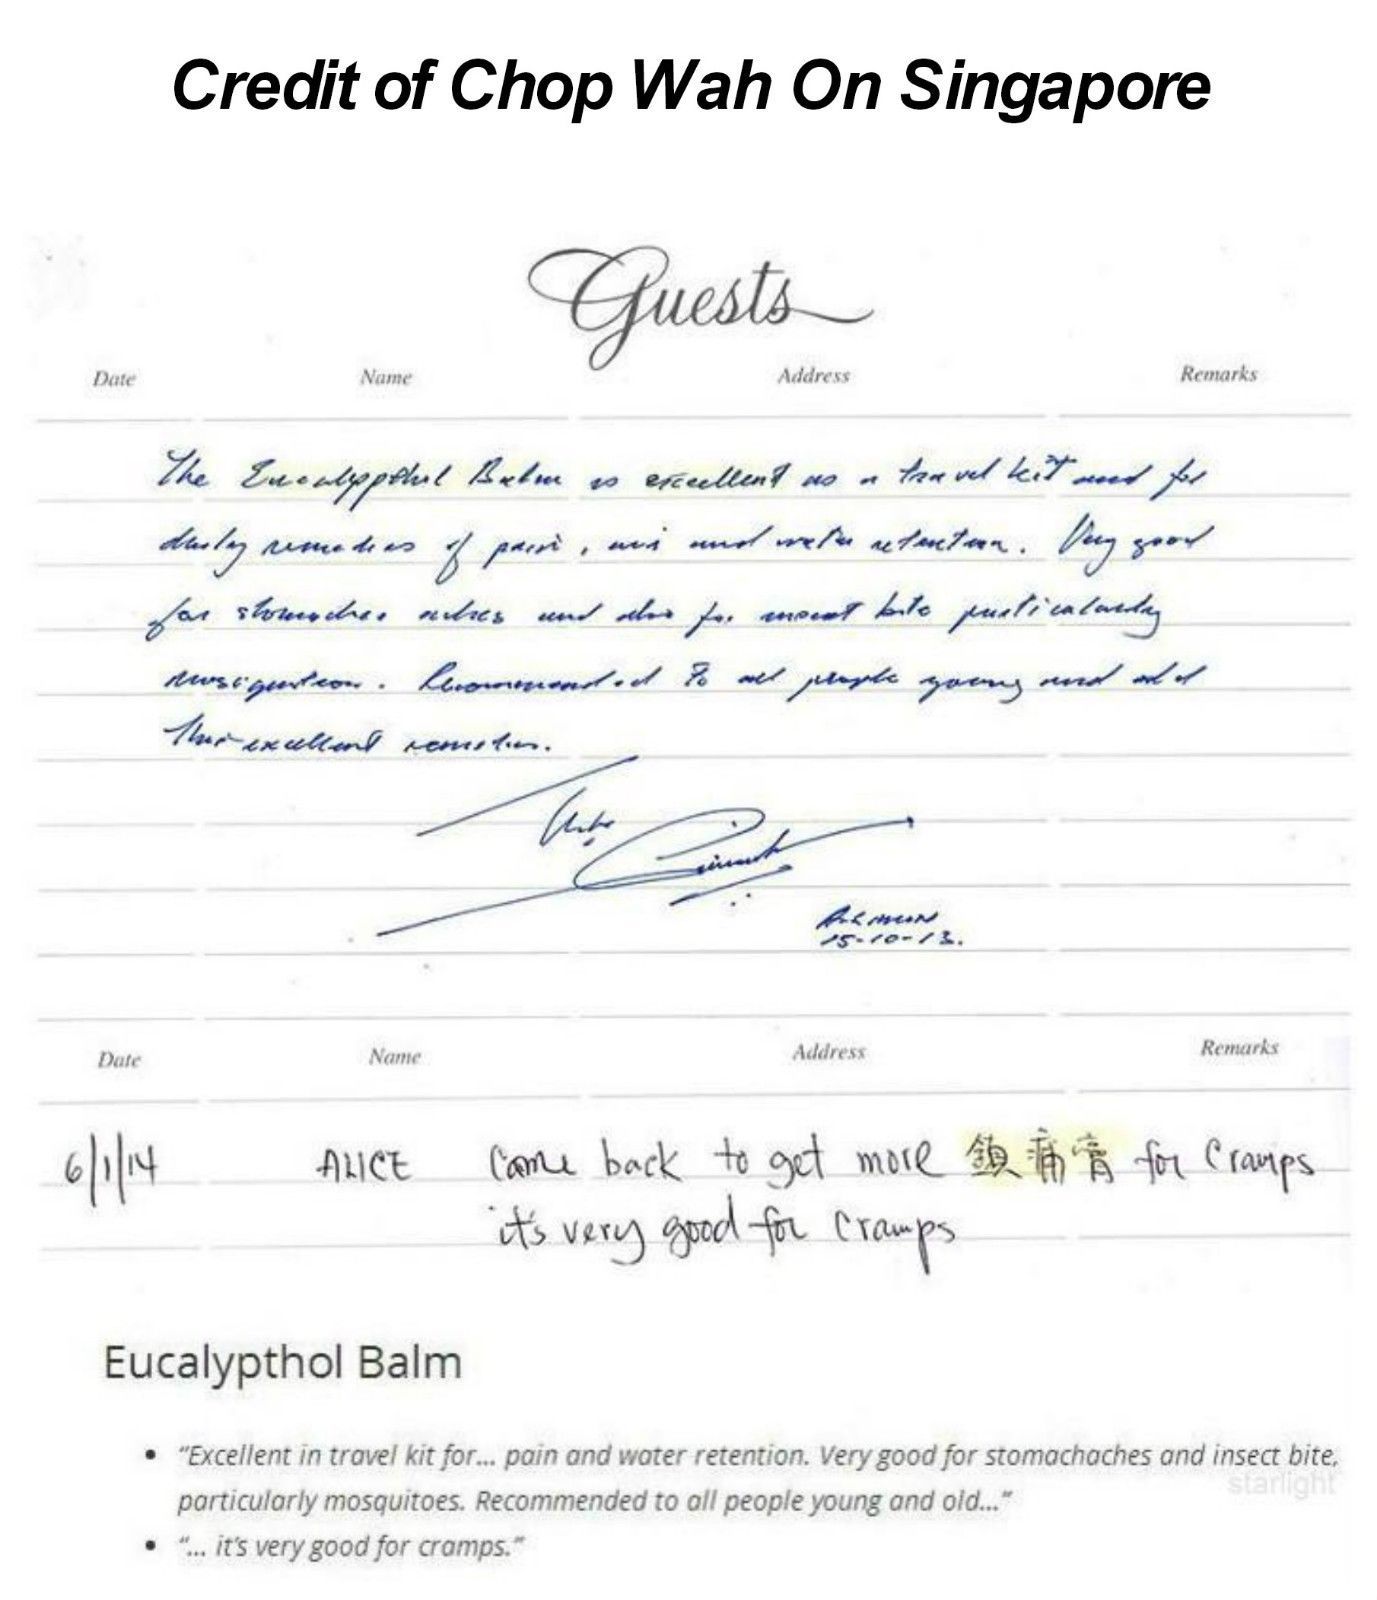 Credit of Chop Wah On Singapore
Guests
Date Name Address Remarks
The Eucalyppthol Balm is excellent as a travel kit and for
daily remedies of pain, and water retention. Very good
for stomaches aches and also for insect bite particularly
Recommended to all people young and old
this excellent remedies.
15-10-13.
Date Name Address Remarks
6/1/14 ALICE Came back to get more 鎮痛膏 for cramps
it's very good for cramps
Eucalypthol Balm
• “Excellent in travel kit for... pain and water retention. Very good for stomachaches and insect bite,
starlight
particularly mosquitoes. Recommended to all people young and old...”
• “... it's very good for cramps.”